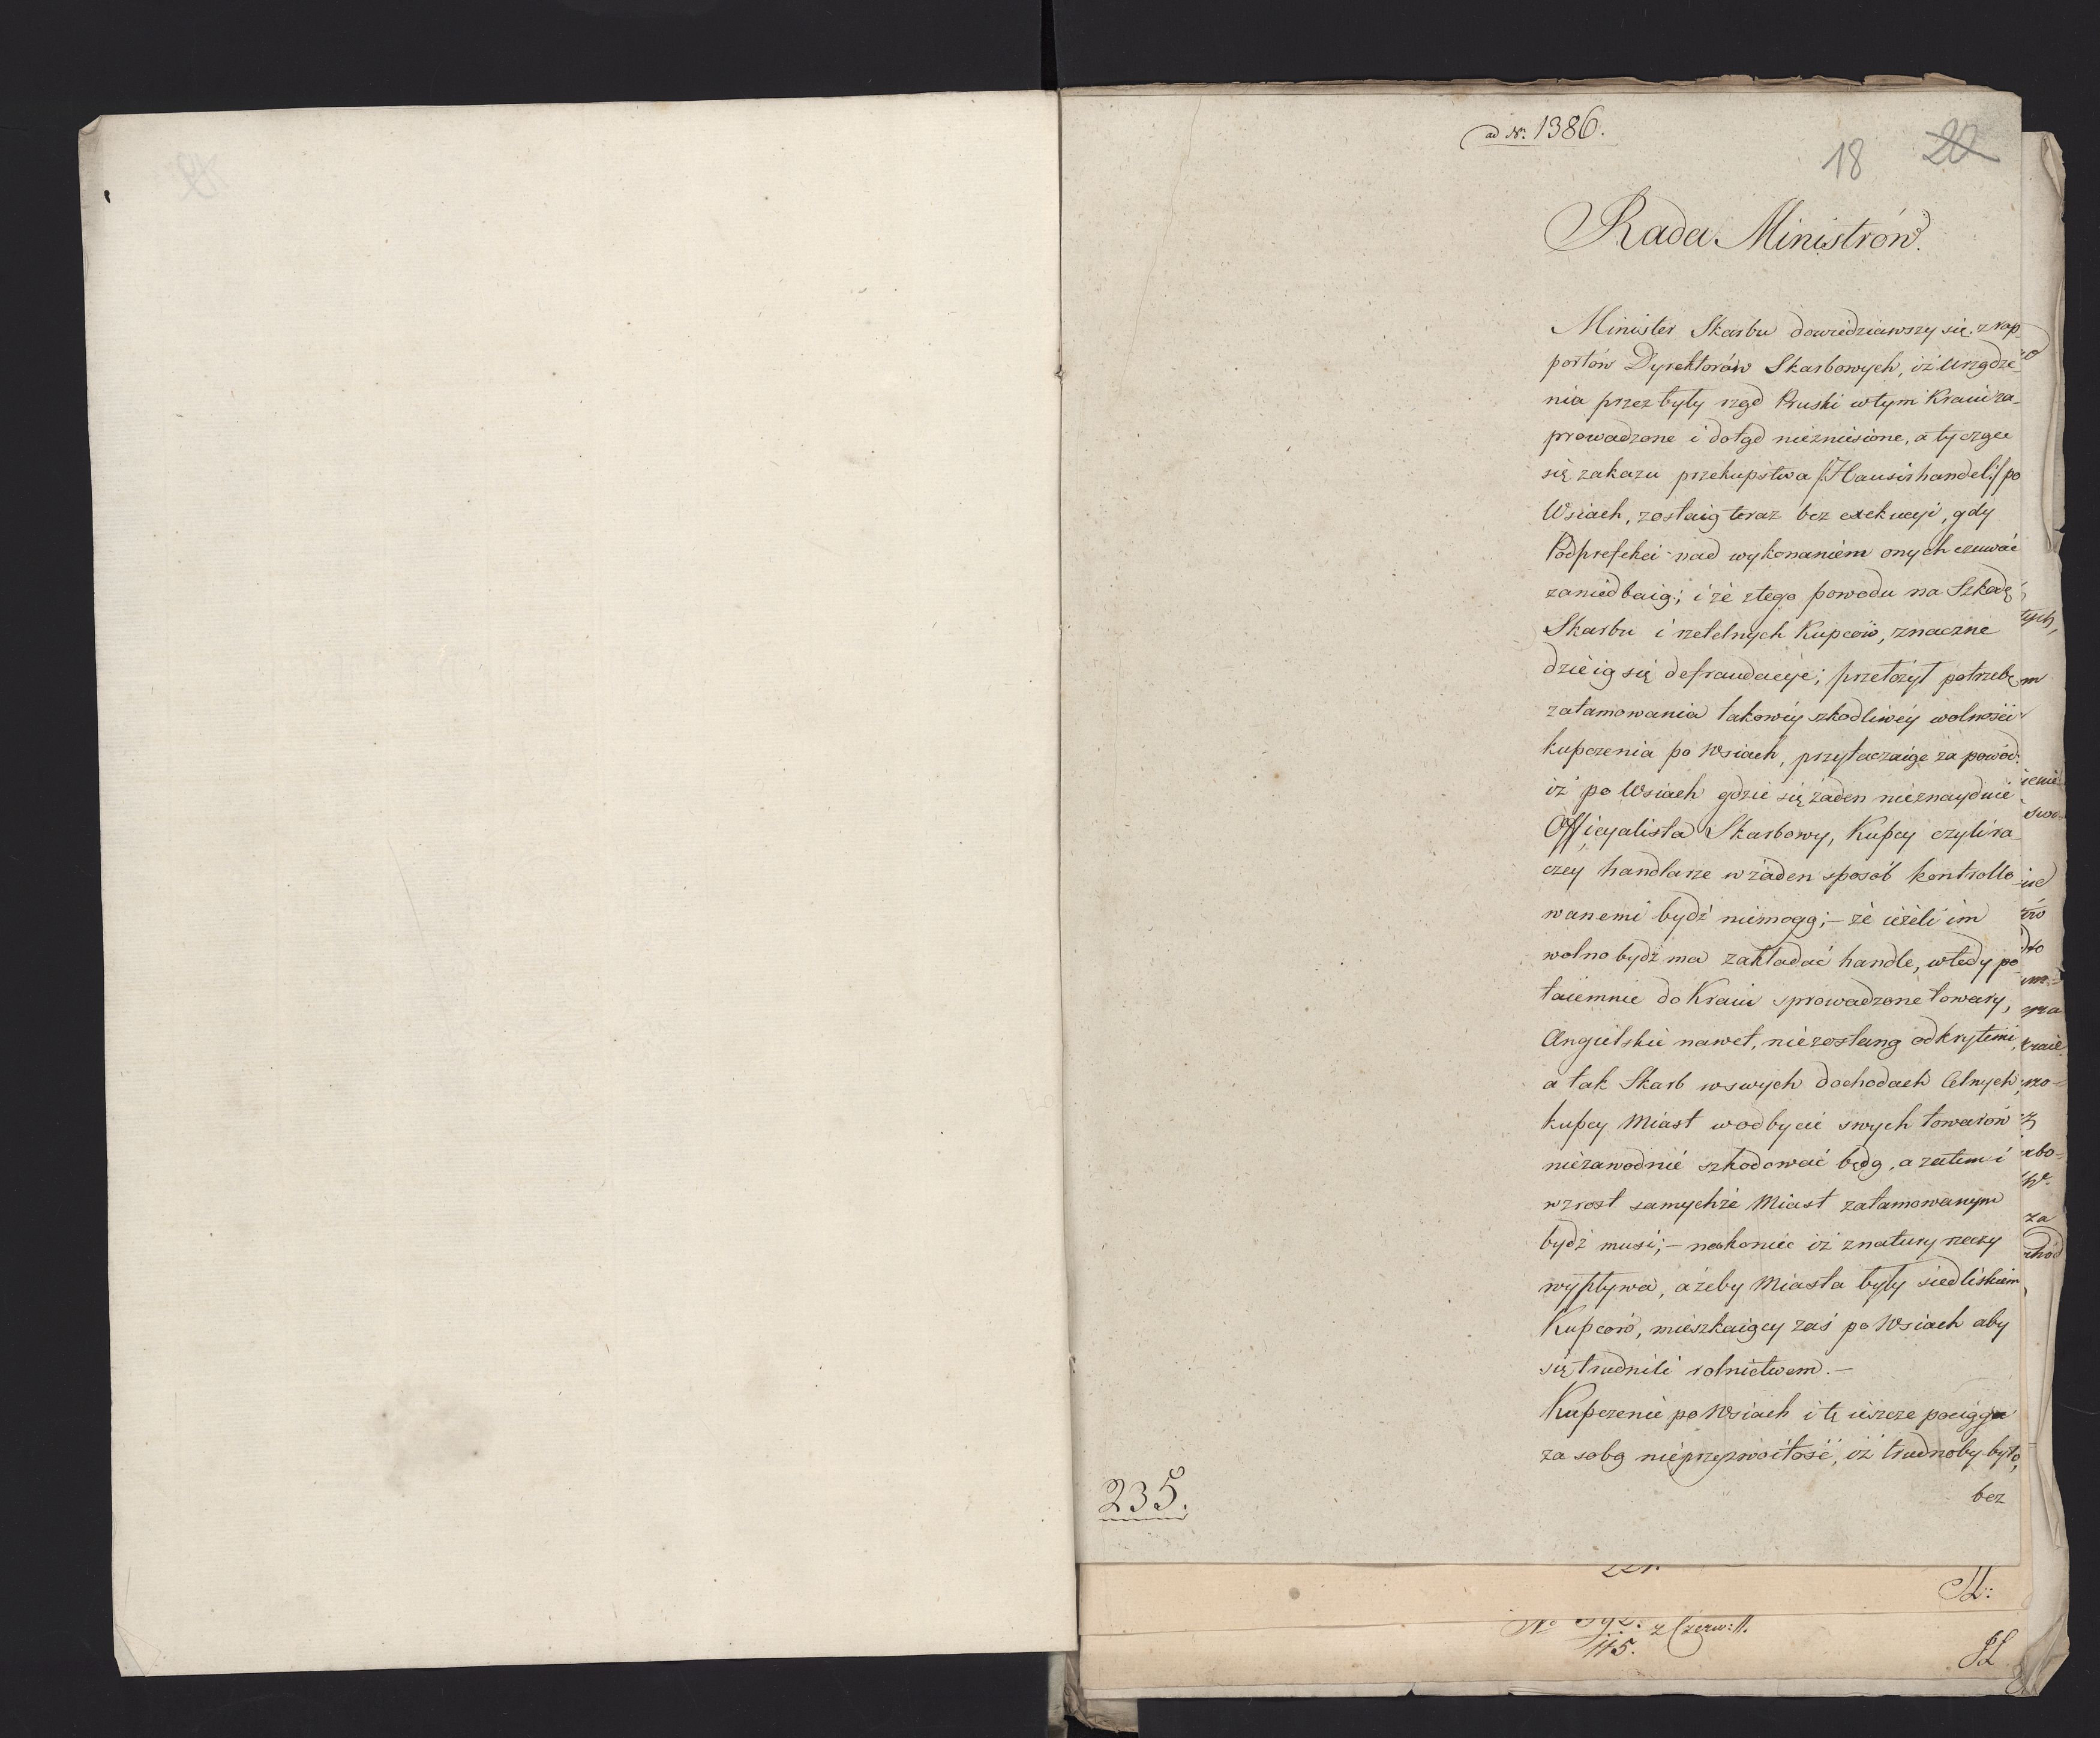 ad Nr: 1386.
18 20
Rada Ministrów.
Minister Skarbu dowiedziawszy się z rap-
portów Dyrektorów Skarbowych, iż Urządze-
nia przez były rząd Pruski w tym Kraiu za-
prowadzone i dotąd niezniesione, a tyczące
się zakazu przekupstwa /:Hausirhandel:/ po
Wsiach, zostaią teraz bez exekucyi, gdy
Podprefekci nad wykonaniem onych czuwać
zaniedbaią; i że z tego powodu na Szkodę
Skarbu i rzetelnych Kupców, znaczne
dzieią się defraudacye; przełożył potrzebę
zatamowania takowéy szkodliwéy wolności
kupczenia po Wsiach, przytaczaiąc za powód:
iż po Wsiach gdzie się żaden nieznayduie
Officyalista Skarbowy, Kupcy czyli ra-
czey handlarze w żaden sposób kontrollo-
wanemi bydź niemogą; – że ieżeli im
wolno bydź ma zakładać handle, wtedy po-
taiemnie do Kraiu sprowadzone towary,
Angielskie nawet, niezostaną odkrytemi,
a tak Skarb w swych dochodach Celnych,
kupcy Miast w odbycie swych towarów
niezawodnie szkodować będą, a zatem i
wzrost samychże Miast zatamowanym
bydź musi; – nakoniec iż z natury rzeczy
wypływa, ażeby Miasta były siedliskiem
Kupców, mieszkaiący zaś po Wsiach aby
się trudnili rolnictwem. –
Kupczenie po Wsiach i tę ieszcze pociąga
za sobą nieprzyzwoitość, iż trudnoby było,
bez
235.
No
115. z Czerw: 11.